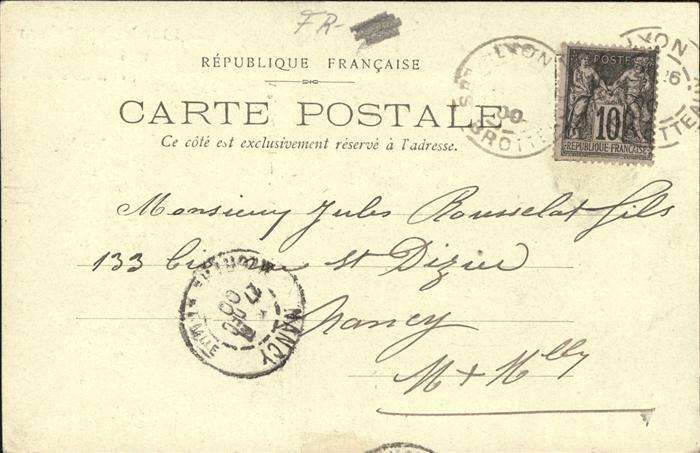 FR-
RÉPUBLIQUE FRANÇAISE
CARTE POSTALE
Ce côté est exclusivement réservé à l'adresse.
LYON
00
BROTTE
LYON
26
OTTE
POSTE
10
RÉPUBLIQUE FRANÇAISE
Monsieur Jules Rousselot fils
133 St Dizier
Nancy
M & Mlle
NANCY
MEURTHE
00